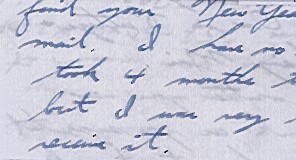 find your New Yea
mail. I have no
took 4 months t
but I was very
receive it.